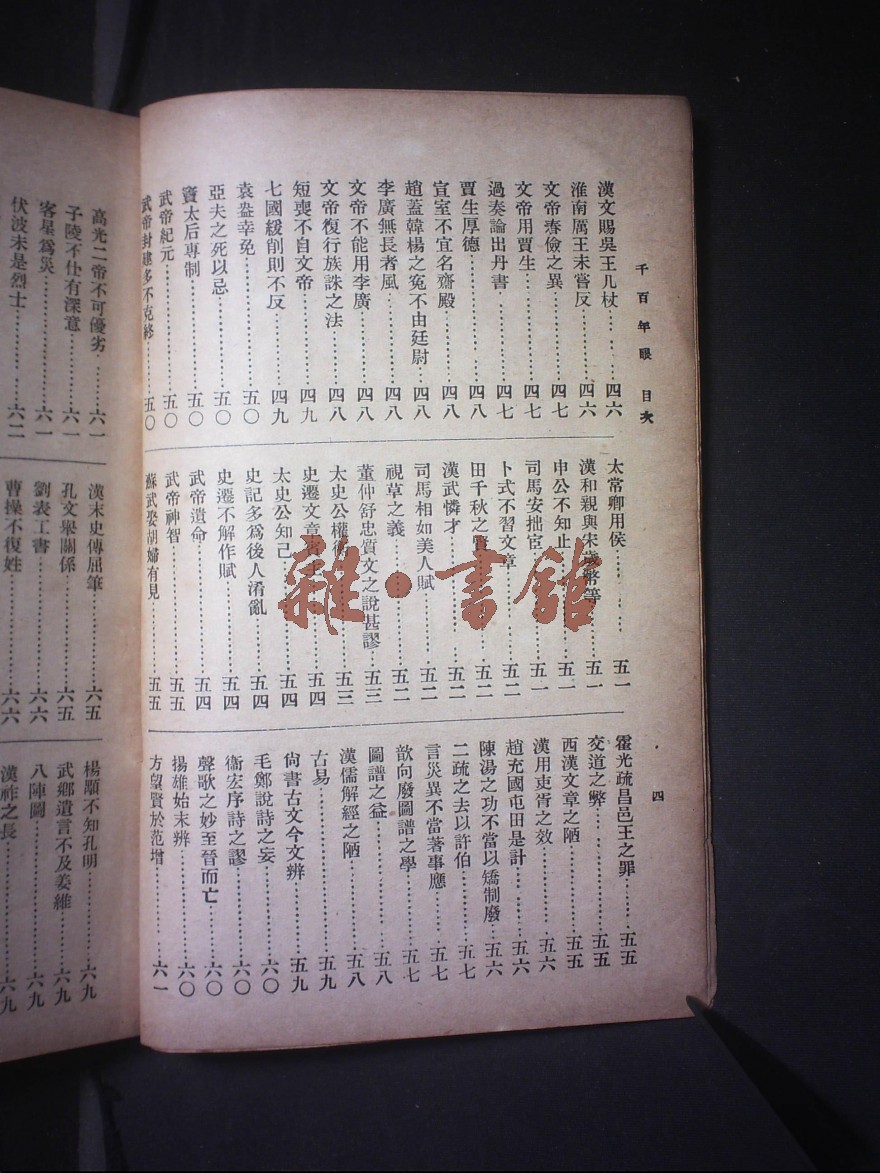 千百年眼 目次
四
漢文賜吳王几杖……四六
淮南厲王未嘗反……四六
文帝奢儉之異……四七
文帝用賈生……四七
過秦論出丹書……四七
賈生厚德……四八
宣室不宜名齋殿……四八
趙蓋韓楊之冤不由廷尉…四八
李廣無長者風……四八
文帝不能用李廣……四八
文帝復行族誅之法……四八
短喪不自文帝……四九
七國緩削則不反……四九
袁盎幸免……五〇
亞夫之死以忌……五〇
竇太后專制……五〇
武帝紀元……五〇
武帝封建多不克終……五〇
太常卿用侯……五一
漢和親與宋歲幣等……五一
申公不知止……五一
司馬安拙宦……五一
卜式不習文章……五二
田千秋之賢……五二
漢武憐才……五二
司馬相如美人賦……五二
視草之義……五二
董仲舒忠質文之說甚謬…五三
太史公權衡……五三
史遷文章賓主……五四
太史公知己……五四
史記多爲後人淆亂……五四
史遷不解作賦……五四
武帝遺命……五四
武帝神智……五五
蘇武娶胡婦有見……五五
霍光疏昌邑王之罪……五五
交道之弊……五五
西漢文章之陋……五五
漢用吏胥之效……五六
趙充國屯田是計……五六
陳湯之功不當以矯制廢…五六
二疏之去以許伯……五七
言災異不當著事應……五七
歆向廢圖譜之學……五七
圖譜之益……五八
漢儒解經之陋……五八
古易……五九
尙書古文今文辨……五九
毛鄭說詩之妄……六〇
衞宏序詩之謬……六〇
聲歌之妙至晉而亡……六〇
揚雄始末辨……六〇
方望賢於范增……六一
高光二帝不可優劣……六一
子陵不仕有深意……六一
客星爲災……六一
伏波未是烈士……六二
漢末史傳屈筆……六五
孔文舉關係……六五
劉表工書……六六
曹操不復姓……六六
楊顒不知孔明……六九
武鄉遺言不及姜維……六九
八陣圖……六九
漢祚之長……六九
雜·書館